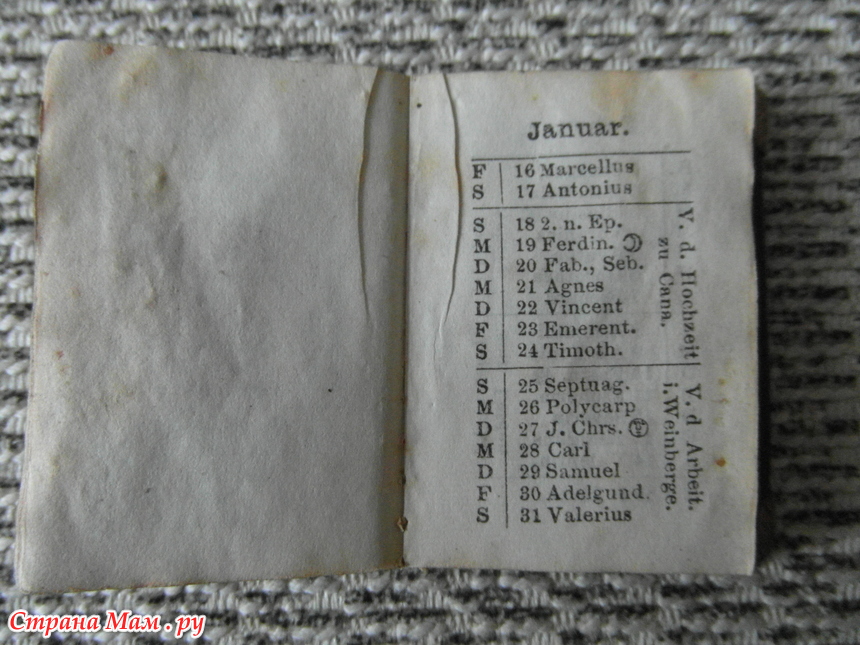 Januar.
F 16 Marcellus
S 17 Antonius
S 18 2. n. Ep.
M 19 Ferdin.
D 20 Fab., Seb.
M 21 Agnes
D 22 Vincent
F 23 Emerent.
S 24 Timoth.
V. d. Hochzeit
zu Cana.
S 25 Septuag.
M 26 Polycarp
D 27 J. Chrs.
M 28 Carl
D 29 Samuel
F 30 Adelgund.
S 31 Valerius
V. d Arbeit.
i. Weinberge.
Страна Мам.ру